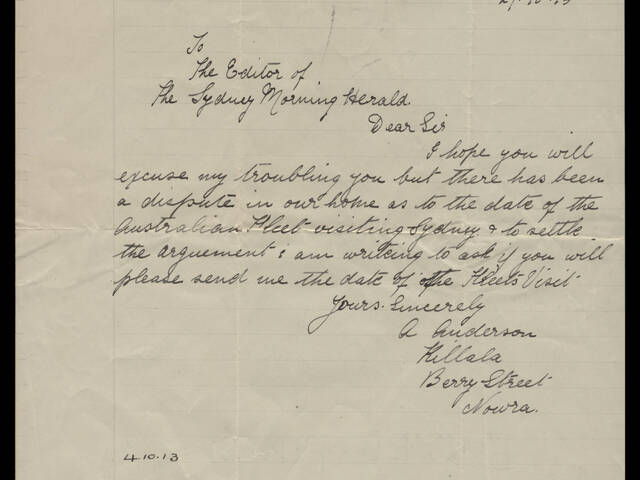 To
The Editor of
The Sydney Morning Herald.
Dear Sir
I hope you will
excuse my troubling you but there has been
a dispute in our home as to the date of the
Australian Fleet visiting Sydney & to settle
the arguement i am writeing to ask if you will
please send me the date of the Fleets Visit
Yours. Sincerely
A Anderson
Killala
Berry Street
Nowra.
4.10.13